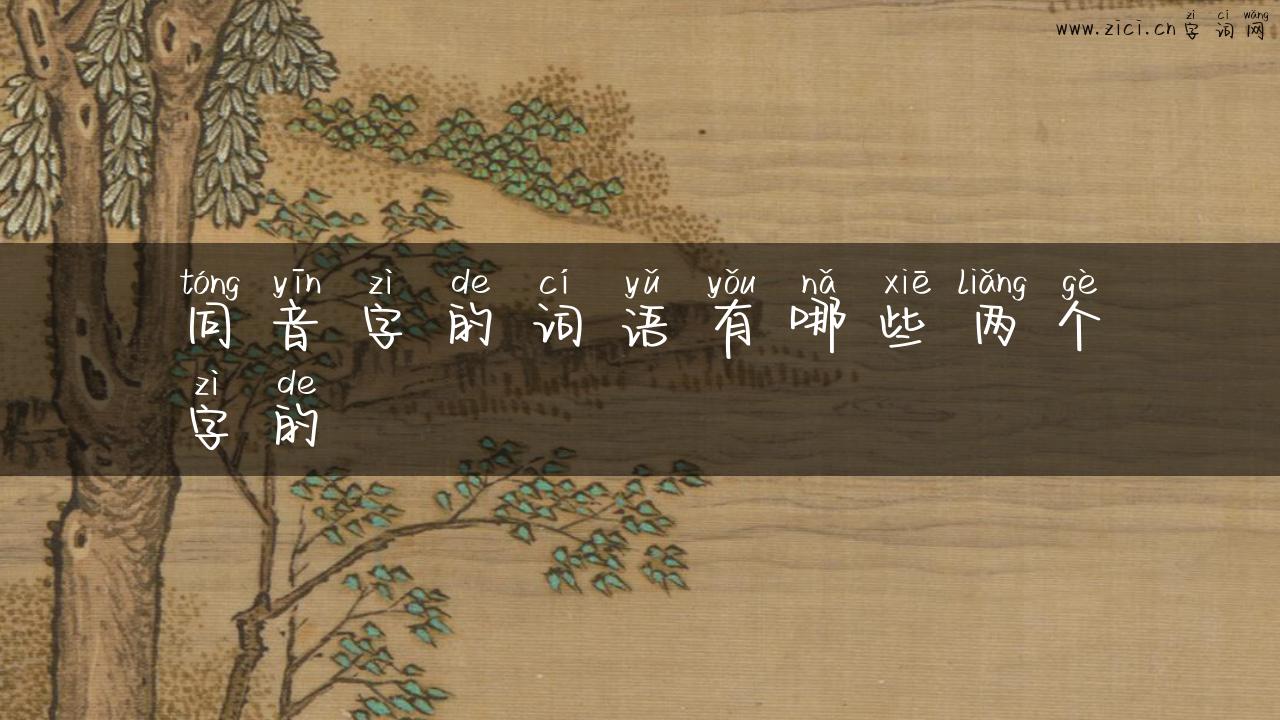 zì cí wǎng
www.zici.cn 字 词 网
tóng yīn zì de cí yǔ yǒu nǎ xiē liǎng gè
同 音 字 的 词 语 有 哪 些 两 个
zì de
字 的